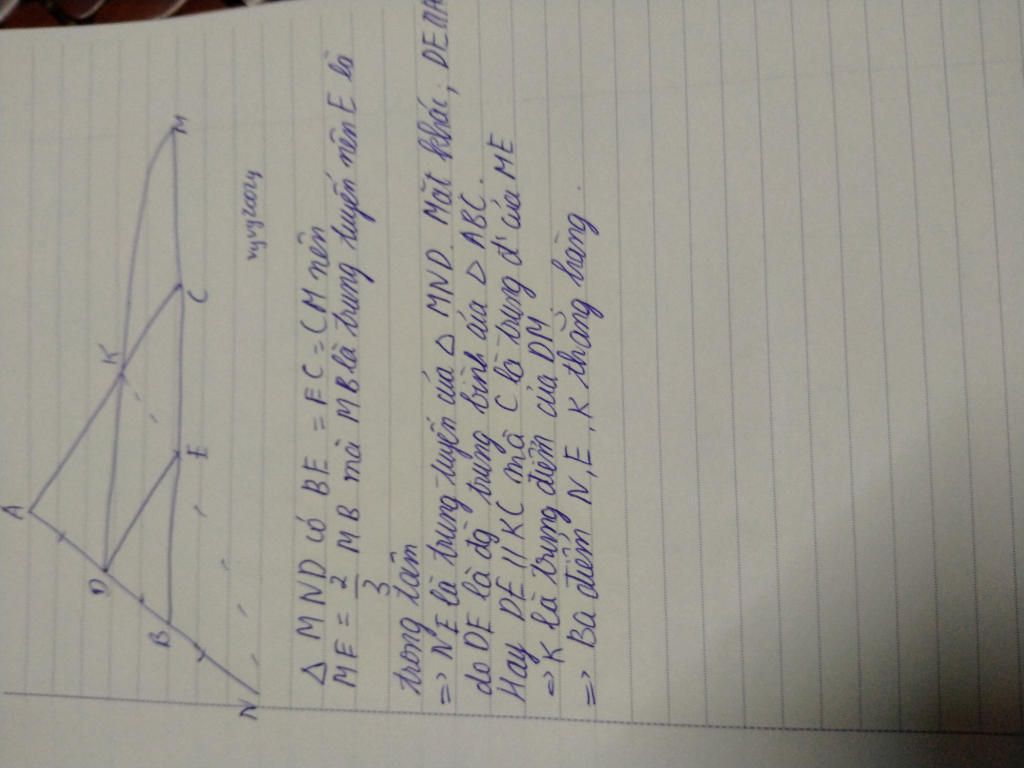 A
D
K
B
E
C
M
N
Δ MND có BE = EC = CM nên
ME = 2/3 MB mà MB là trung tuyến nên E là
trong tâm
=> NE là trung tuyến của Δ MND. Mặt khác, DE//A
do DE là đg trung bình của Δ ABC.
Hay DE // KC mà C là trung đ' của ME
=> K là trung điểm của DM
=> Ba điểm N, E, K thẳng hàng.